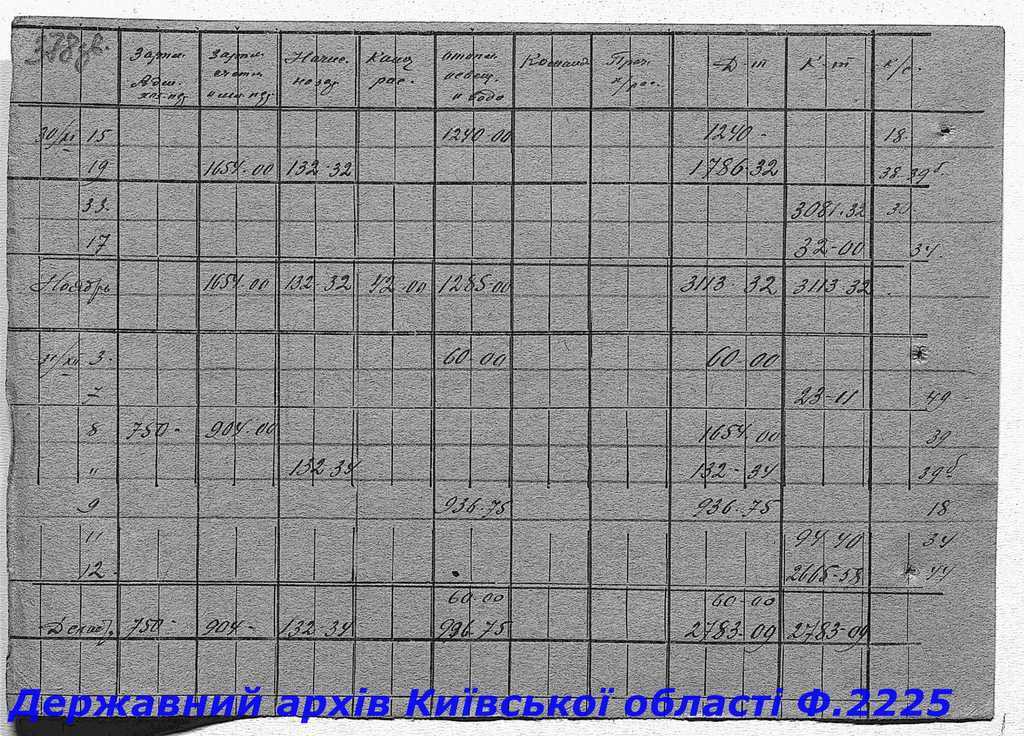 378
Зарпл. Зарпл. Начис. Канц. отопл. Команд. Проч. Д-т К-т к/с.
Адм. счетн. рас. освещ. р/рас.
и водо
30/XI 15 1240-00 1240- 18.
19 1654-00 132-32 1786-32 38-39б
33. 3081.32 30.
17 32-00 34.
Ноябрь 1654.00 132-32 42-00 1285-00 3113-32 3113-32
31/XII 3. 60-00 60-00
7 23-11 49
8 750- 904-00 1654.00 39
" 132 34 132-34 39б
9 936-75 936-75 18
11 94-40 34
12 2665-58 44
60-00 60-00
Декаб. 750- 904- 132-34 996-75 2783-09 2783-09
Державний архів Київської області Ф.2225